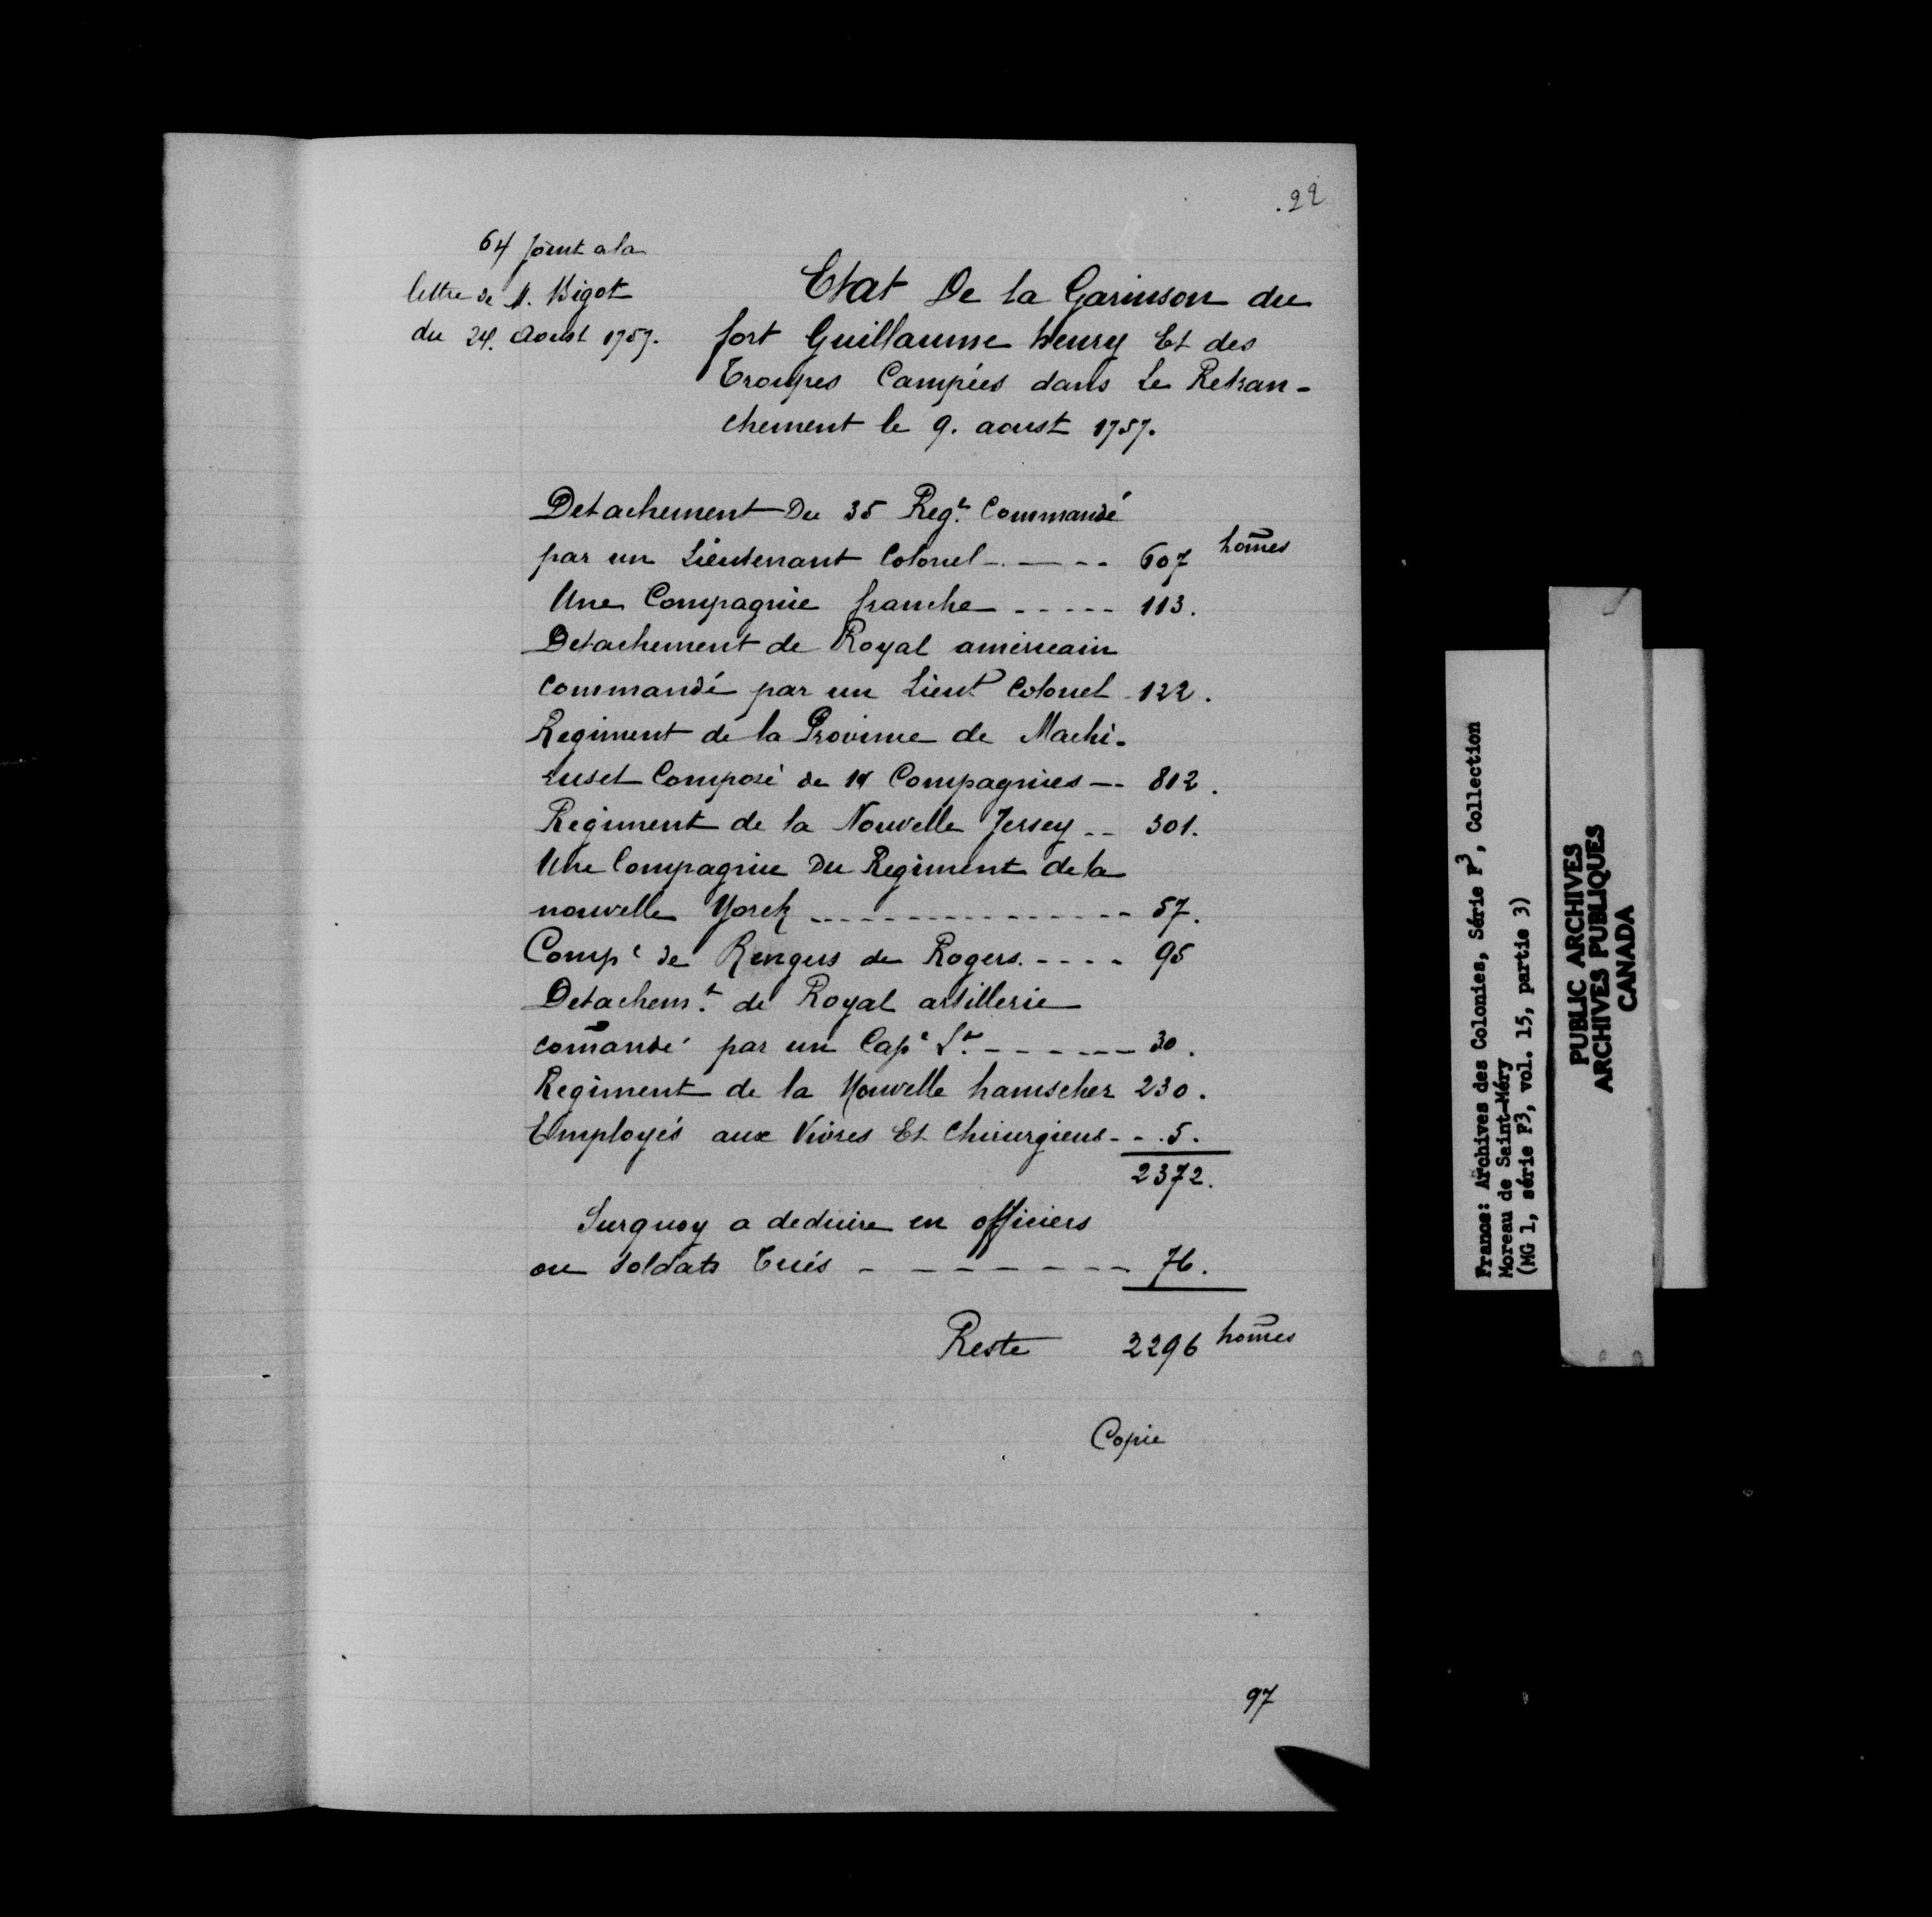 .22
64 Joint a la
lettre de M. Bigot
du 24. Aoust 1757.
Etat De la Garinson du
fort Guillaume henry Et des
Troupes Campées dans Le Retran-
chement le 9. aoust 1757.
Detachement Du 35 Regt. Commandé
par un Lieutenant Colonel - - - - 607 hom̃es
Une Compagnie franche - - - - - 113.
Detachement de Royal americain
Commandé par un Lieut Colonel 122.
Regiment de la Province de Machi-
suset Composé de Compagnies - - 812.
Regiment de la Nouvelle Jersey - - 301.
Une Compagnie Du Regiment de la
nouvelle Yorck - - - - - - - - - - - - - - 57.
Compe de Rengers de Rogers. - - - - 95
Detachemt. de Royal artillerie
com̃andé par un Cape Lt. - - - - - - 30.
Regiment de la Nouvelle hamscher 230.
Employés aux Vivres Et Chirurgiens - - . 5.
2372.
Surquoy a deduire en officiers
ou soldats Tués - - - - - - - - 76.
Reste 2296 hom̃es
Copie
97
France: Archives des Colonies, Série F3, Collection
Moreau de Saint-Méry
(MG 1, série F3, vol. 15, partie 3)
PUBLIC ARCHIVES
ARCHIVES PUBLIQUES
CANADA